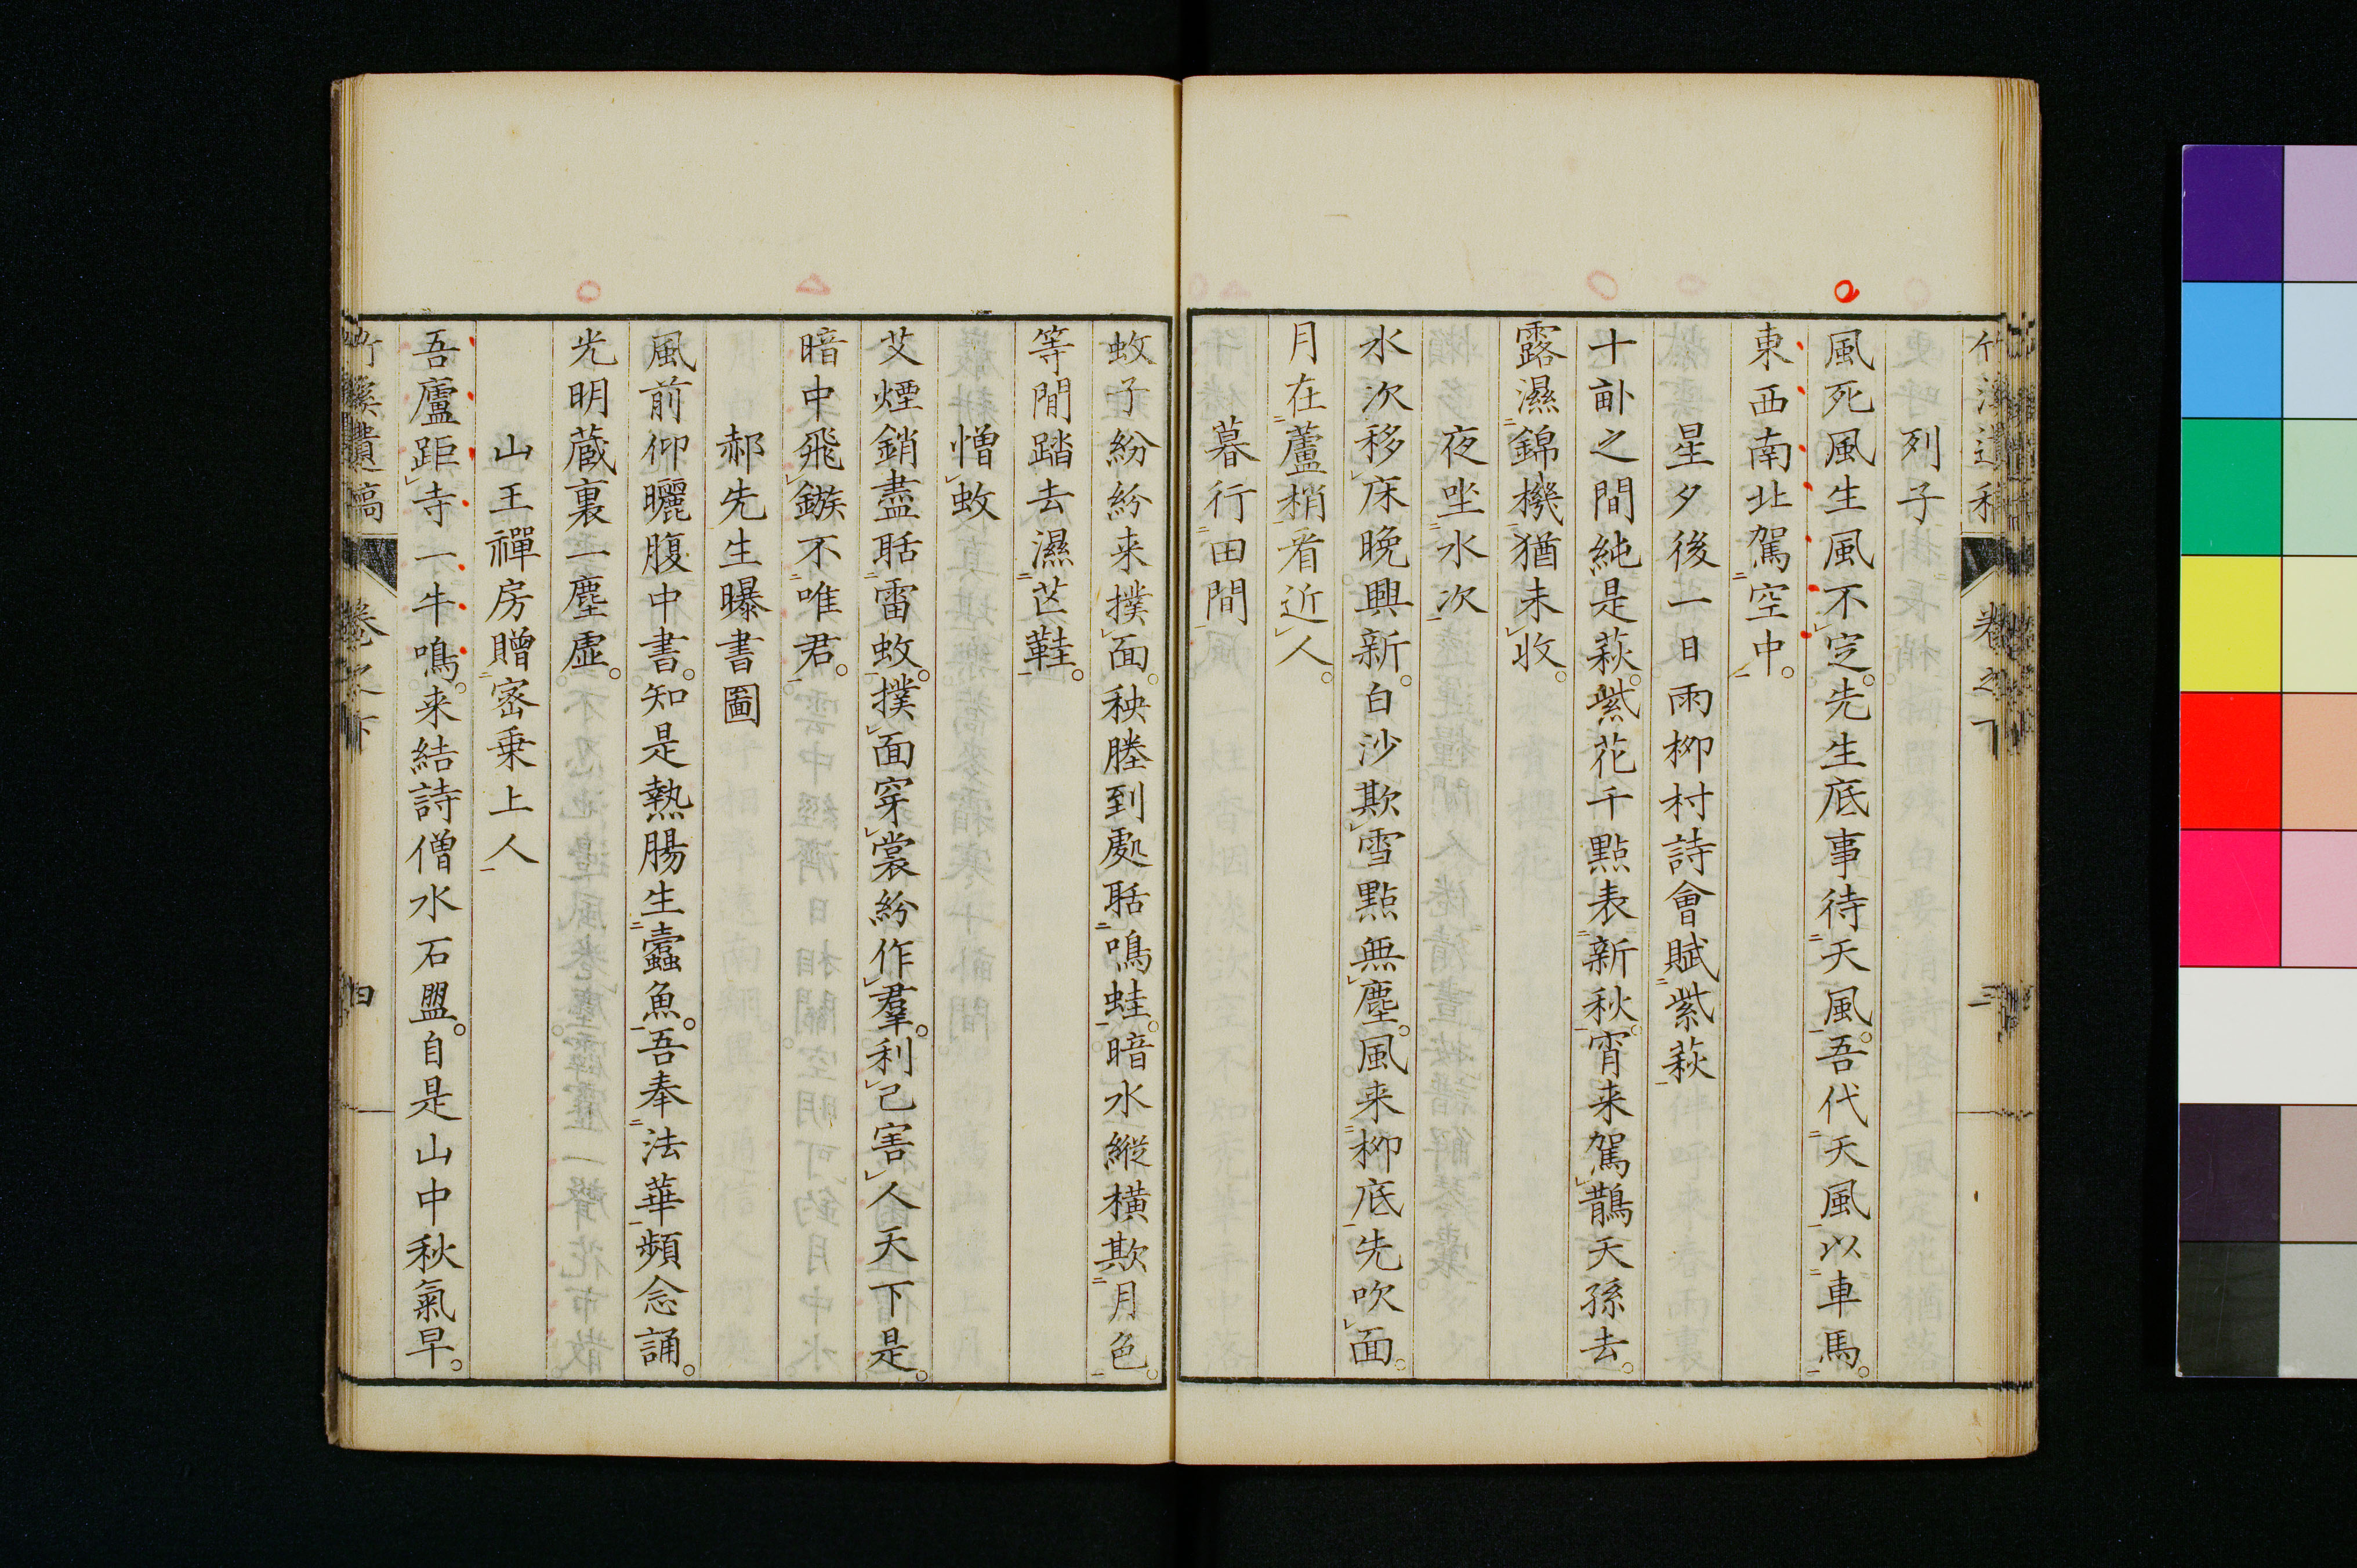 列子
風死風生風不定。先生底事待天風。吾代天風以車馬。
東西南北駕空中。
星夕後一日雨柳村詩會賦紫萩
十畝之間純是萩。紫花千點表新秋。宵来駕鵲天孫去。
露濕錦機猶未收。
夜坐水次
水次移床晚興新。白沙欺雪點無塵。風来柳底先吹面。
月在蘆梢看近人。
暮行田間
蚊子紛紛来撲面。秧塍到處聒鳴蛙。暗水縱橫欺月色。
等閒踏去濕芒鞋。
憎蚊
艾煙銷盡聒雷蚊。撲面穿裳紛作羣。利己害人天下是。
暗中飛鏃不唯君。
郝先生曝書圖
風前仰曬腹中書。知是熱腸生蠹魚。吾奉法華頻念誦。
光明蔵裏一塵虚。
山王禪房贈密乗上人
吾廬距寺一牛鳴。来結詩僧水石盟。自是山中秋氣早。
竹溪遺稿 卷之下 四